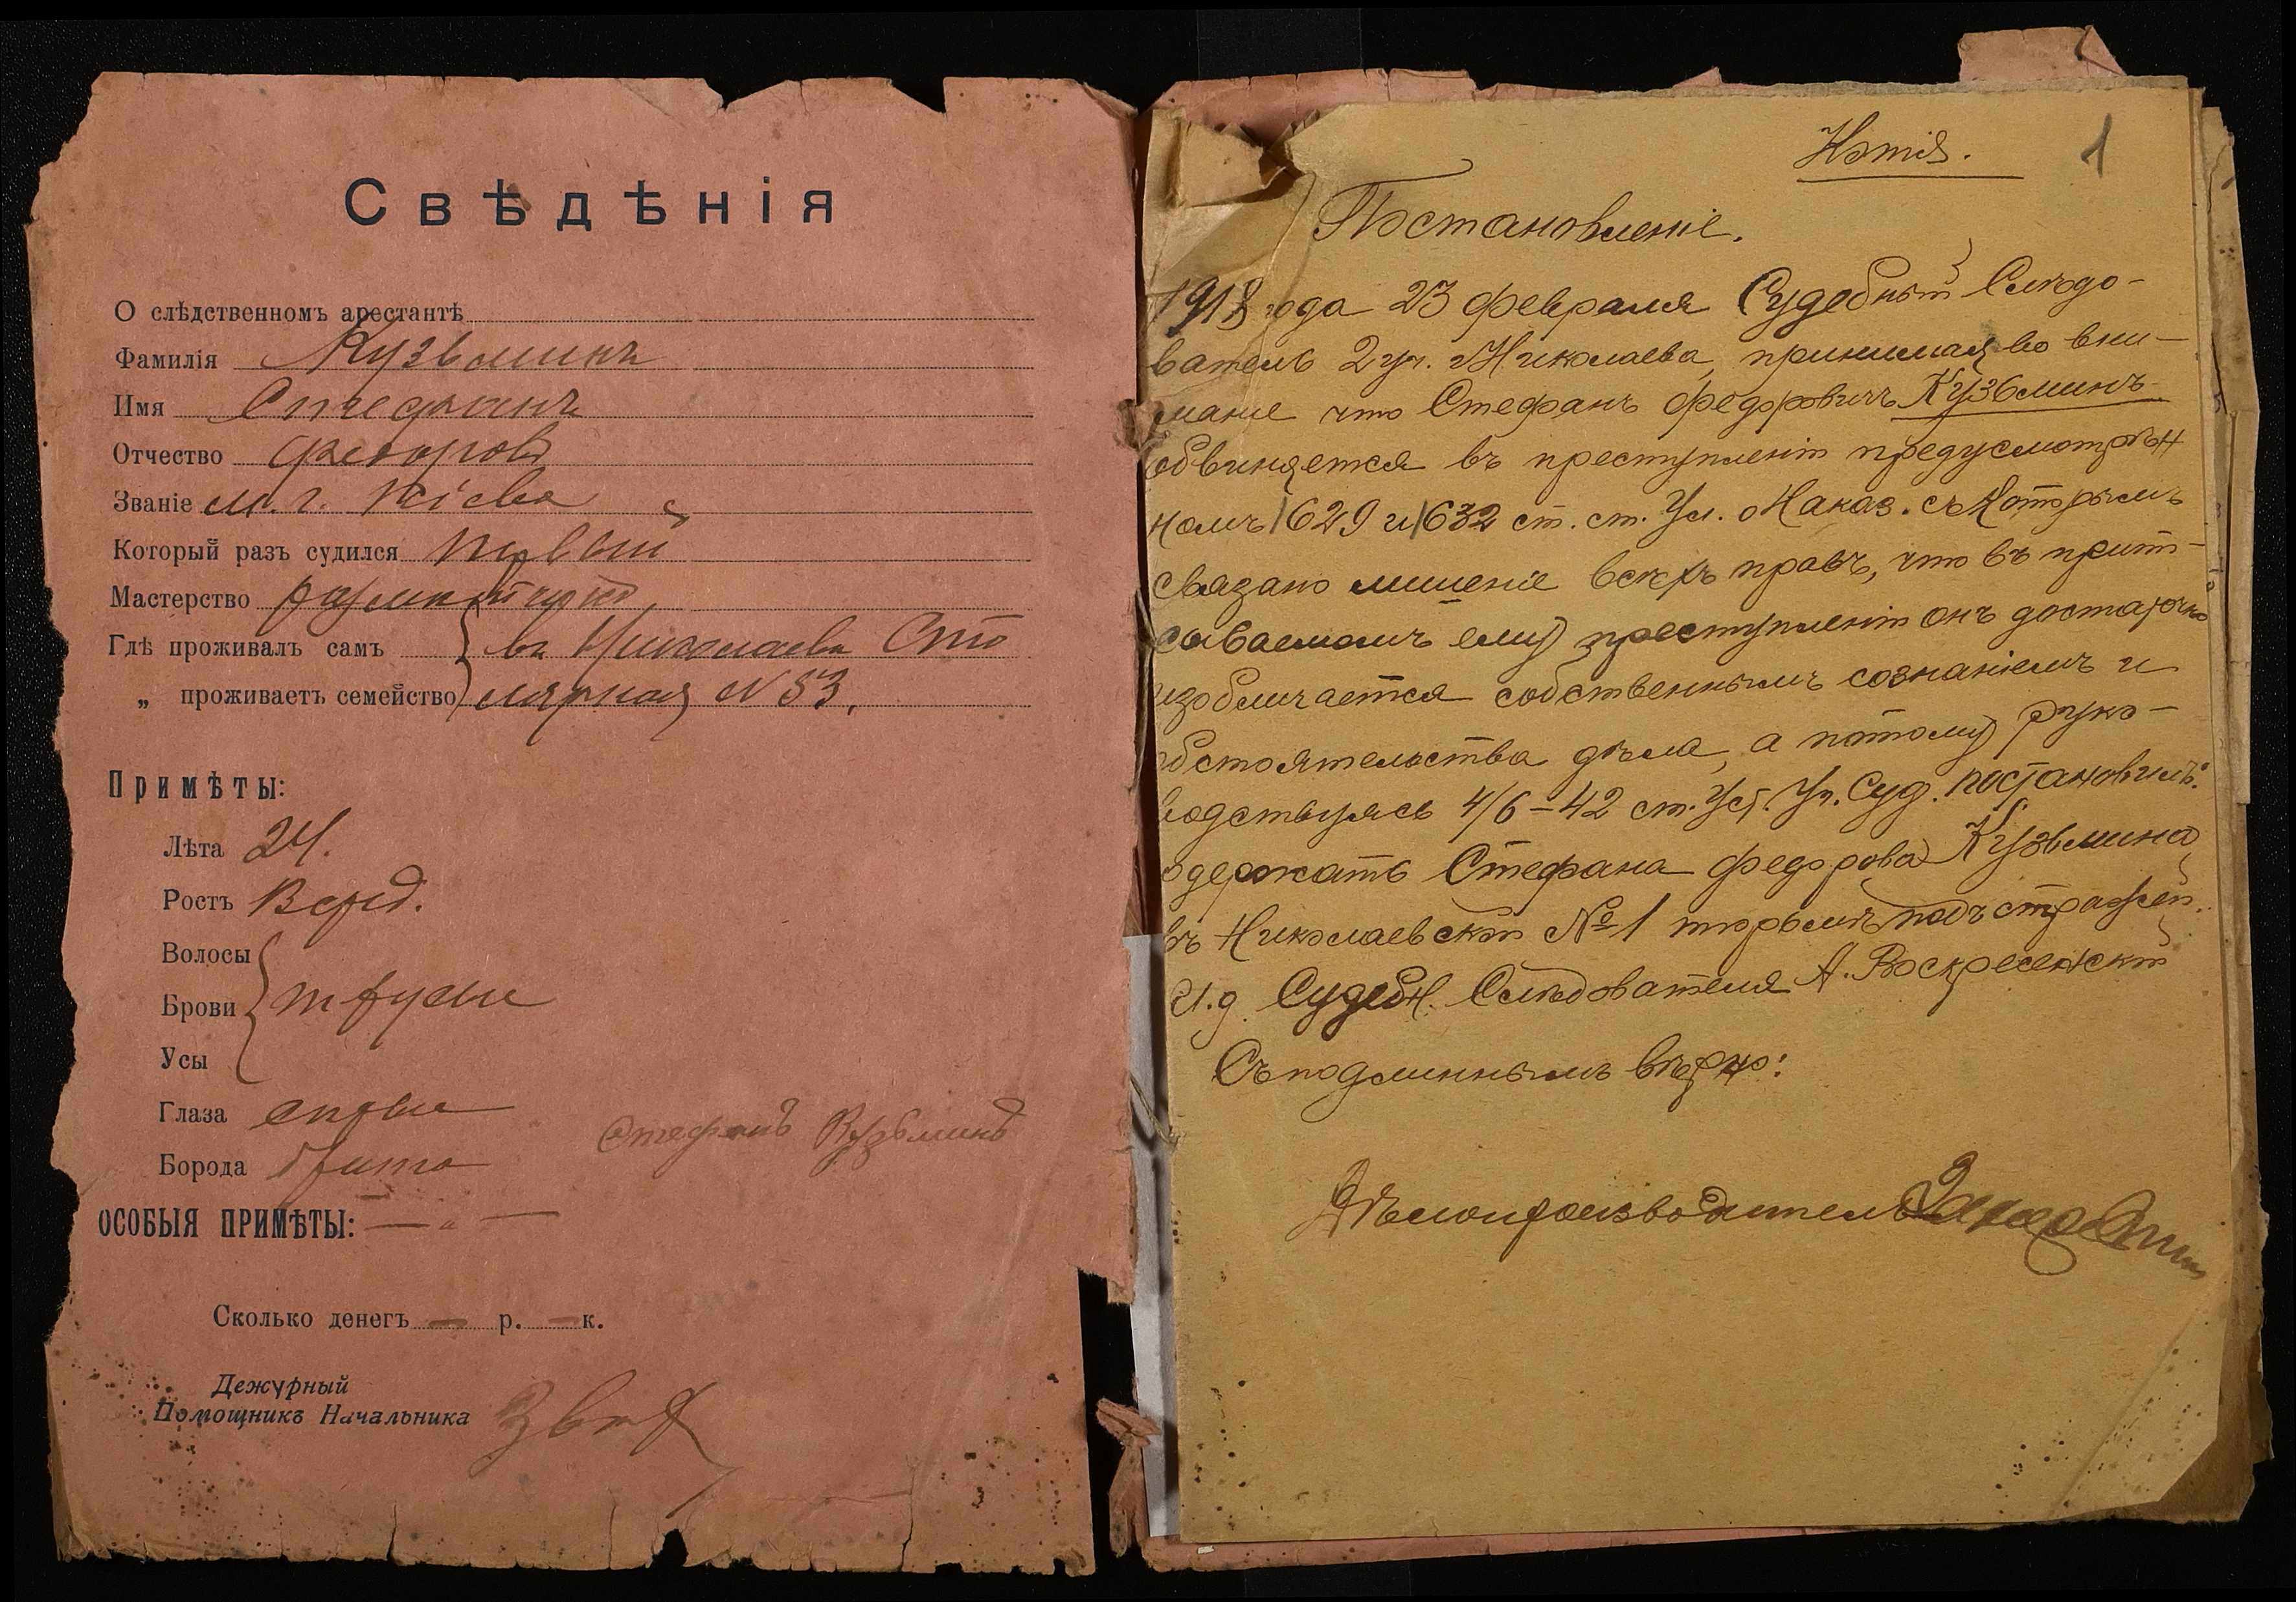 Свѣдѣнія
О слѣдственномъ арестантѣ
Фамилія Кузьминъ
Имя Стефанъ
Отчество Федоровъ
Званіе м. г. Кіева
Который разъ судился первый
Мастерство
Гдѣ проживалъ самъ въ Николаевѣ Сто
„ проживаетъ семейство лярная N 53.
Примѣты:
Лѣта 24.
Ростъ
Волосы
Брови т русые
Усы
Глаза
Борода брита
ОСОБЫЯ ПРИМѢТЫ: — " —
Сколько денегъ — р. — к.
Дежурный
Помощникъ Начальника
Стефанъ Кузьминъ
Копія. 1
Постановленіе.
1918 года 23 февраля Судебный Слѣдо-
ватель 2 уч. г Николаева, принимая во вни-
маніе что Стефанъ Федоровичъ Кузьминъ
обвиняется въ преступленіи предусмотрѣн
номъ 1629 и 1632 ст. ст. Ул. о Наказ. съ которымъ
связано лишеніе всѣхъ правъ, что въ припи-
сываемомъ ему преступленіи онъ достаточно
изобличается собственнымъ сознаніемъ и
обстоятельства дѣла, а потому руко-
водствуясь 4/6-42 ст. Уст. Уг. Суд. постановилъ:
содержать Стефана Федорова Кузьмина
въ Николаевской № 1 тюрьмѣ подъ стражей.
И.д. Судебн. Слѣдователя А. Воскресенскій
Съ подлиннымъ вѣрно:
Дѣлопроизводитель